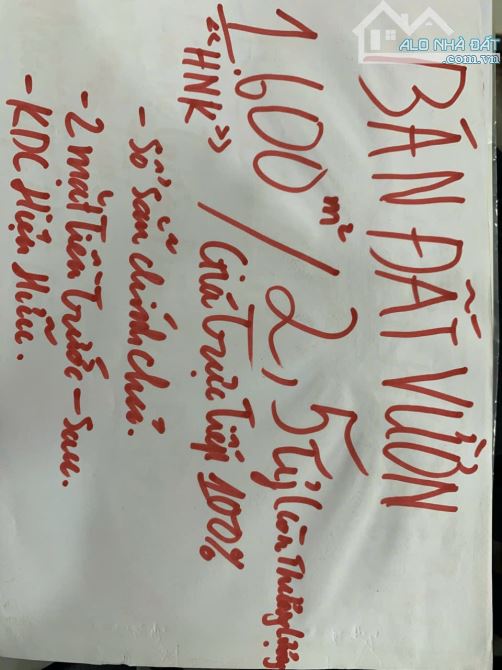 ALO NHÀ ĐẤT
.com.vn
BÁN ĐẤT VƯỜN
1.600m² / 2,5 Tỷ (Còn Thương Lượng)
"HNK" / Giá Trực Tiếp 100%
- Sổ Sẵn chính chủ.
- 2 mặt Tiền Trước - Sau.
- KDC Hiện Hữu.